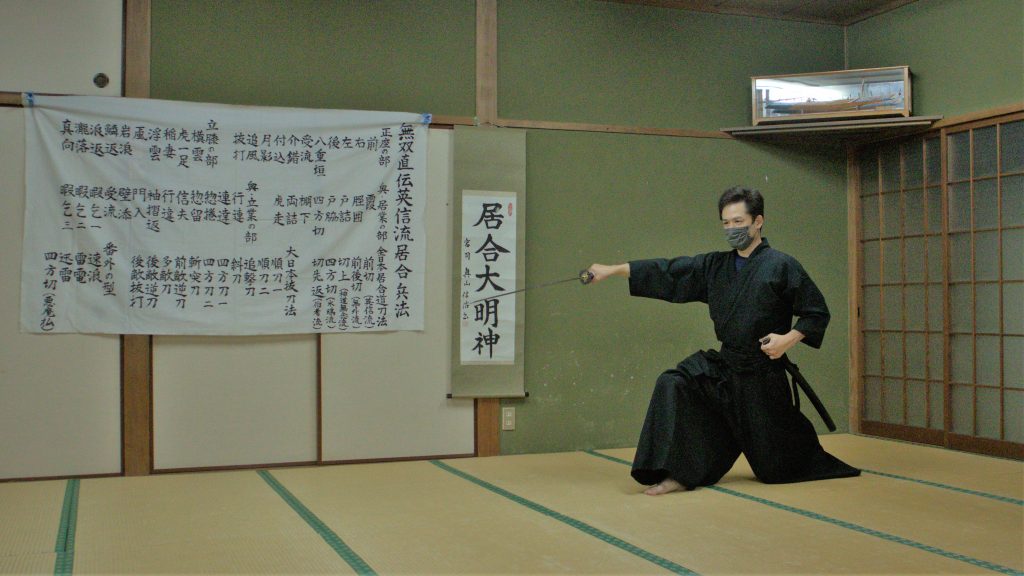 無双直伝英信流居合兵法
正座の部
前
右
左
後
八重垣
受流
介錯
付込
月影
追風
抜打
立膝の部
横雲
虎一足
稲妻
浮雲
岩浪
鱗返
浪返
瀧落
真向
奥居業の部
霞
脛囲
戸詰
戸脇
四方切
棚下
両詰
虎走
奥立業の部
行連
連達
惣捲
惣留
信夫
行違
袖摺返
門入
壁添
受流
暇乞一
暇乞二
暇乞三
全日本居合道刀法
前切(英信流)
前後切(無外流)
切上(神道無念流)
四方切(水鴎流)
切先返(伯耆流)
大日本抜刀法
順刀一
順刀二
追撃刀
斜刀
四方刀一
四方刀二
斬突刀
前敵逆刀
多敵刀
後敵逆刀
後敵抜打
番外の型
速浪
雷電
迅雷
四方切(悪魔払)
居合大明神